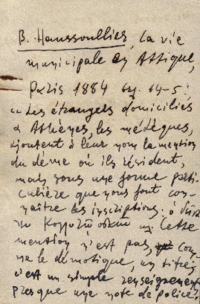 B. Haussoullier, la vie
municipale en Attique,
Paris 1884 pg. 194-5:
"Les étrangers domiciliés
à Athènes, les métèques,
ajoutent à leur nom la mention
du dème où ils résident,
mais sous une forme parti-
culière que nous font con-
naître les inscriptions: ὁ δεῖνα
Cette
mention n'est pas com-
me le démotique, un titre;
c'est un simple renseignement
presque une note de police"